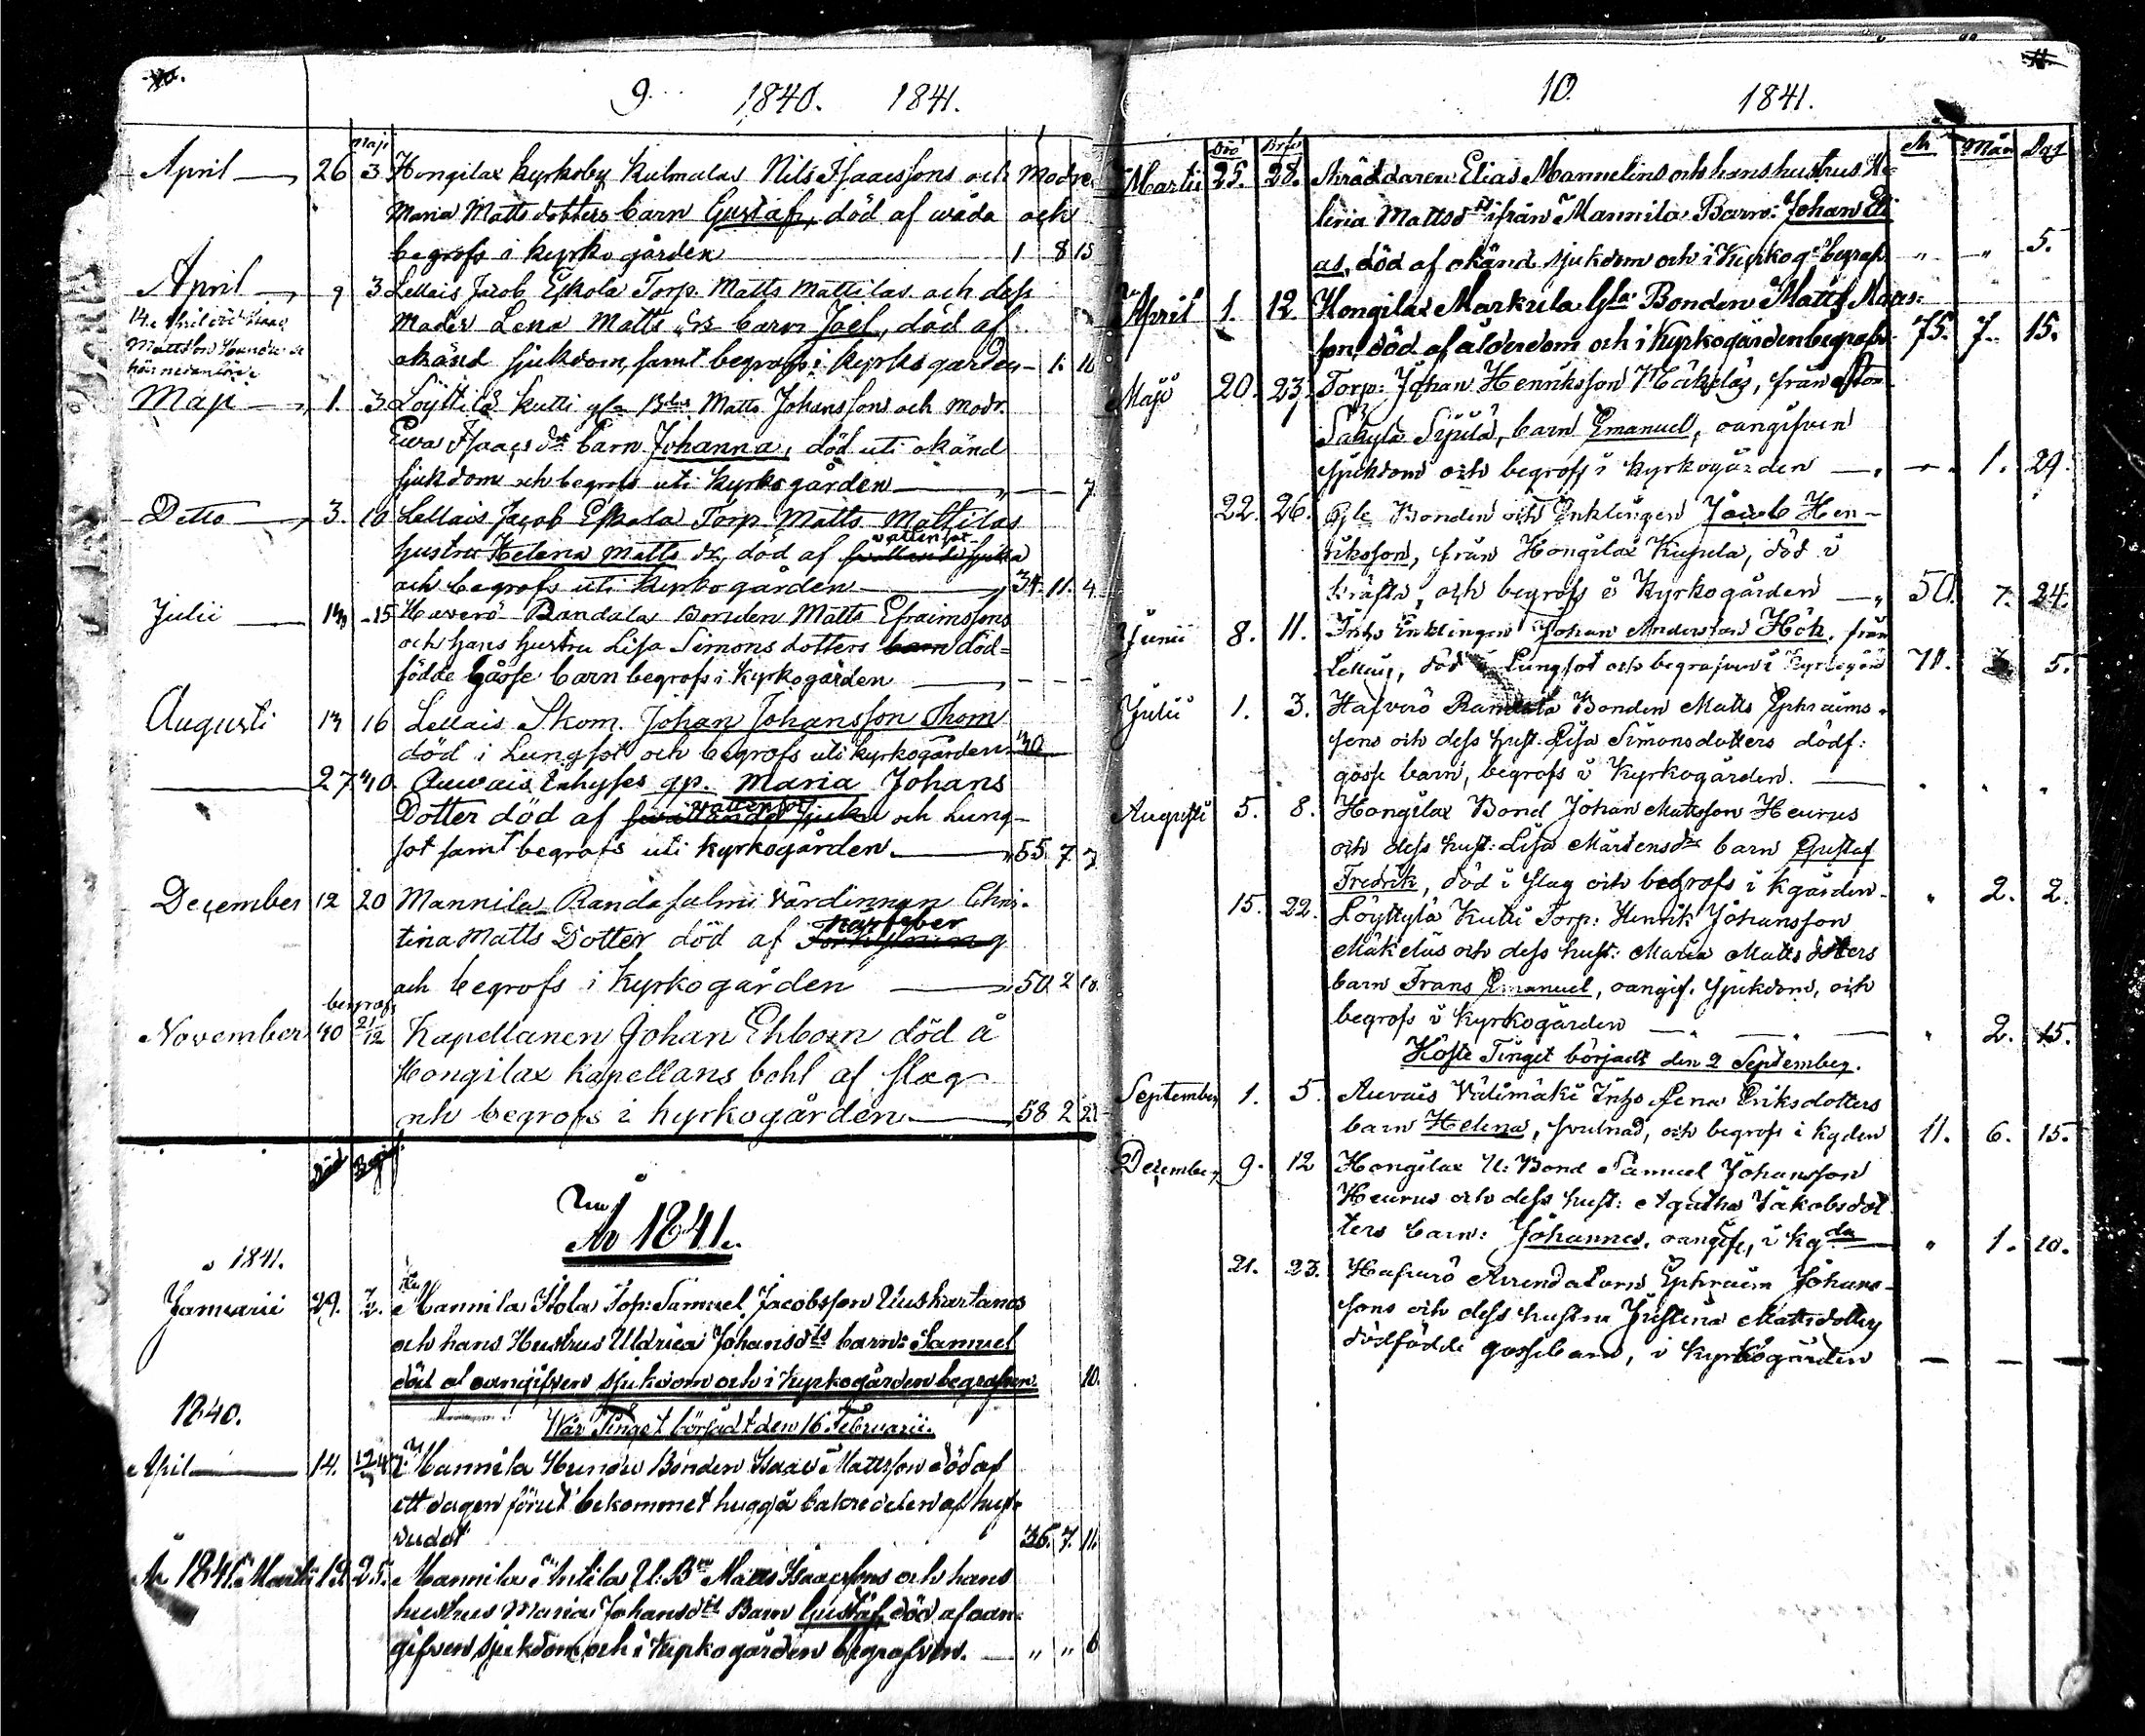 9. 1840. 1841.
Maji
April 26 3 Hongilax Kyrkoby Kulmalas Nils Isaacssons och Modre
Maria Matts dotters barn Gustaf, död af wåda och
begrofs i kyrko gården 1 8 15
April 9 3 Lellais Jacob Eskola Torp. Matts Mattilas och dess
Moder Lena Matts drs barn Joel, död af
okänd sjukdom, samt begrofs i kyrko garden 1. 16
14. April död Isaac
Mattsson Hunou se
här nedanföre
Maji 1. 3 Löyttilä Kutti Matts Johanssons och Modr.
Ewa Isaacs dr barn Johanna, död uti okänd
sjukdom och begrofs uti kyrkogården 7
Detto 3. 10 Lellais Jacob Eskola Torp Matts Mattilas
hustru Helena Matts dr, död af vattensot
och begrofs uti kyrkogården 34. 11. 4
Julii 13 15 Haverö Randala Bonden Matts Efraimssons
och hans hustru Lisa Simons dotters barn död-
födde Gåsse barn begrofs i kyrkogården
Augusti 13 16 Lellais Skom. Johan Johansson Thom
död i Lungsot och begrofs uti kyrkogården 30
27 30. Auvais Inhyses qp. Maria Johans
Dotter död af vattensot och Lung-
sot samt begrofs uti kyrkogården 55 7 7
December 12 20 Mannila Randasalmi värdinnan Chris-
tina Matts Dotter död af närfeber
och begrofs i kyrkogården 50 2 10
begrofs
November 30 21/12 Kapellanen Johan Ehborn död å
Hongilax Kapellans bohl af slag
och begrofs i kyrkogården 58 2 22
Död Begrof.
År 1841.
1841.
Januarii 29. 7/2. Mannila Stola Torp: Samuel Jacobsson Uuskartanos
och hans Hustrus Uldrica Johansdts barn: Samuel
död af oangifven sjukdom och i kyrkogården begrafven. 10.
Wår Tinget börjadt den 16. Februarii.
1840.
April 14. Mannila Hunou Bonden Isaac Mattsson död af
ett dagen förut bekommet hugg å bakre delen af huf-
vudet 36. 7. 11.
År 1841. Martii 19. 25. Mannila Anttila U: Bn Matts Isaacssons och hans
hustrus Maria Johansdts Barn Gustaf, död af oan-
gifven sjukdom och i kyrkogården begrafven. " " 6
10. 1841.
Död Begr. År Mån Dag
Martii 25. 28. Skräddaren Elias Mannelins och hans hustrus He-
lena Mattsdrs ifrån Mannila Barn: Johan Eli-
as, död af okänd sjukdom och i Kyrkogdn begraf. " " 5.
April 1. 12 Hongilax Markula Gla: Bonden Matts Mats-
son, död af ålderdom och i Kyrkogården begrafv. 75. 7. 15.
Maji 20. 23. Torp: Johan Henriksson Mäkeläs, från
Säkylä Sipilä, barn Emanuel, oangifven
sjukdom och begrofs i kyrkogården 1. 29.
22. 26. Gle Bonden och Enklingen Jacob Hen-
riksson, från Hongilax Kupila, död i
kräfta, och begrofs å Kyrkogården 50. 7. 24.
Junii 8. 11. Inhs Enklingen Johan Andersson Hök, från
Lellais, död i Lungsot och begrafven i kyrkogård 71. 5.
Julii 1. 3. Hafverö Randala Bonden Matts Ephraims-
sons och dess hust. Lisa Simonsdotters dödf:
gosse barn, begrofs å Kyrkogården.
Augusti 5. 8. Hongilax Bond Johan Mattsson Heurus
och dess hust: Lisa Mårtensdrs barn Gustaf
Fredrik, död i slag och begrofs i Kgården " 2. 2.
15. 22. Löyttylä Kutti Torp: Henrik Johansson
Mäkeläs och dess hust: Maria Matts dotters
barn Frans Emanuel, oangif. sjukdom, och
begrofs å kyrkogården " 2. 15.
Höste Tinget börjadt den 2 September.
September 1. 5. Auvais Välimäki Inhs Lena Eriksdotters
barn Helena, svulnad, och begrofs i kgden 11. 6. 15.
December 9. 12 Hongilax U: Bond Samuel Johansson
Heurus och dess hust: Agatha Jakobsdot-
ters barn: Johannes, oangif, i kgden " 1. 20.
21. 23. Hafverö Arrendatorns Ephraim Johans-
sons och dess hustru Justina Mattsdotters
dödfödde gossebarn, i kyrkogården